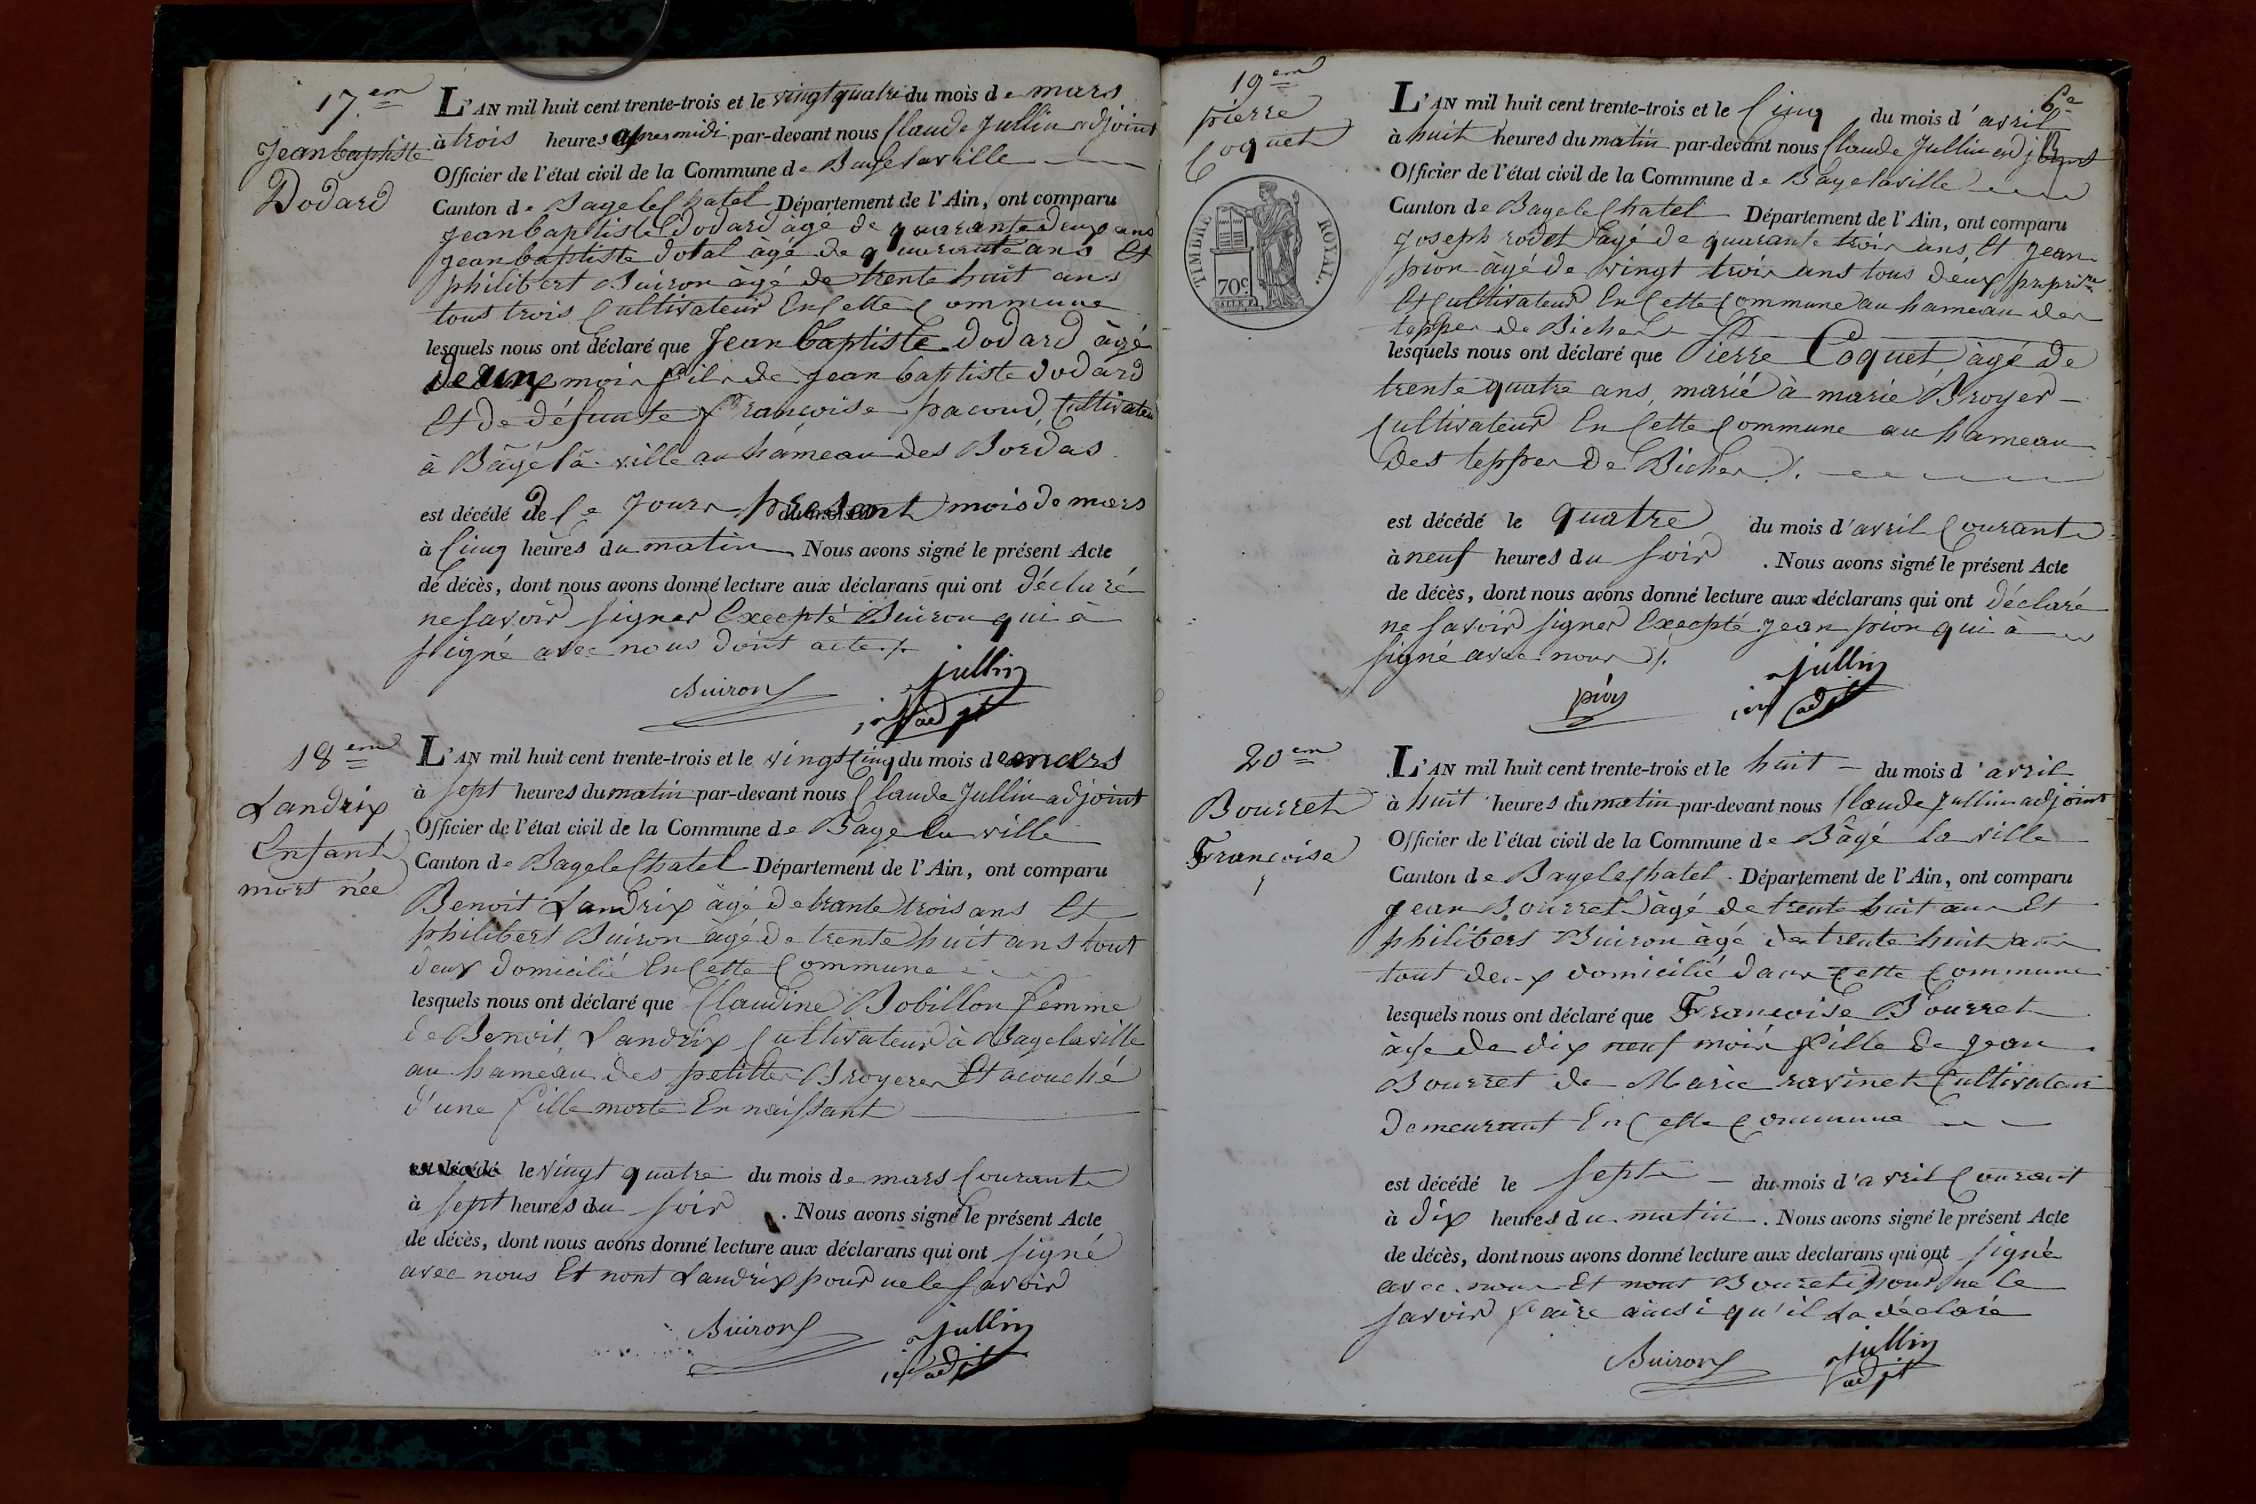 17.em
Jean baptiste
Dodard
L'AN mil huit cent trente-trois et le vingt quatre du mois de mars
à trois heures apres midi par-devant nous Claude Jullin adjoint
Officier de l'état civil de la Commune de Bagé laville
Canton de Bagé le Chatel Département de l'Ain, ont comparu
jean baptiste Dodard àgé de quarante deux ans
jean baptiste Dotal àgé de quarante ans Et
philibert Buiron àgé de trente huit ans
tous trois Cultivateur En Cette Commune
lesquels nous ont déclaré que Jean baptiste Dodard àgé
de un mois fils de jean baptiste Dodard
Et de défunte françoise pacoud, Cultivateur
à Bâgé la ville au hameau des Bordas
est décédé de Ce Jour present mois de mars
à Cinq heures du matin Nous avons signé le présent Acte
de décès, dont nous avons donné lecture aux déclarans qui ont déclaré
ne savoir signer Excepté Buiron qui à
signé avec nous dont acte
Buiron
jullin
adjt
18.em
Landrix
Enfant
mort née
L'AN mil huit cent trente-trois et le vingt Cinq du mois de mars
à sept heures du matin par-devant nous Claude Jullin adjoint
Officier de l'état civil de la Commune de Bage la ville
Canton de Bage le Chatel Département de l'Ain, ont comparu
Benoit Landrix àgé de trante trois ans Et
philibert Buiron àgé de trente huit ans tout
deux domicilié En Cette Commune
lesquels nous ont déclaré que Claudine Bobillon femme
de Benoit Landrix Cultivateur à Bage la ville
au hameau des petittes Broyeres Et acouché
d'une fille morte En naissant
est décédé le vingt quatre du mois de mars Courant
à sept heures du soir. Nous avons signé le présent Acte
de décès, dont nous avons donné lecture aux déclarans qui ont signé
avec nous Et nont Landrix pour ne le savoir
Buiron
jullin
1er adjt
6e
19em
pierre
Coquet
TIMBRE ROYAL.
70c
L'AN mil huit cent trente-trois et le Cinq du mois d'avril
à huit heures du matin par-devant nous Claude Jullin adjoint
Officier de l'état civil de la Commune de Bage laville
Canton de Bage le Chatel Département de l'Ain, ont comparu
joseph rodet àgé de quarante trois ans, Et jean
pion àgé de vingt trois ans tous deux proprire
Et Cultivateur En Cette Commune au hameau des
teppes de Bicher
lesquels nous ont déclaré que Pierre Coquet àgé de
trente quatre ans, marié à marie Broyer
Cultivateur En Cette Commune au hameau
des teppes de Bicher
est décédé le quatre du mois d'avril Courant
à neuf heures du soir. Nous avons signé le présent Acte
de décès, dont nous avons donné lecture aux déclarans qui ont déclaré
ne savoir signer Excepté jean pion qui à
signé avec nous
pion
jullin
1er adjt
20em
Bourret
Françoise
L'AN mil huit cent trente-trois et le huit du mois d'avril
à huit heures du matin par-devant nous Claude Jullin adjoint
Officier de l'état civil de la Commune de Bâgé la ville
Canton de Bage le Chatel. Département de l'Ain, ont comparu
jean Bourret àgé de trente huit ans Et
philibert Buiron àgé de trente huit ans
tout deux domicilié dans Cette Commune
lesquels nous ont déclaré que Françoise Bourret
àgé de dix neuf mois fille de jean
Bourret de Marie ravinet Cultivateur
demeurant En Cette Commune
est décédé le sept du mois d'avril Courant
à dix heures du matin. Nous avons signé le présent Acte
de décès, dont nous avons donné lecture aux declarans qui ont signé
avec nous Et nont Bouret pour ne le
savoir faire ainsi qu'il La déclaré
Buiron
jullin
adjt